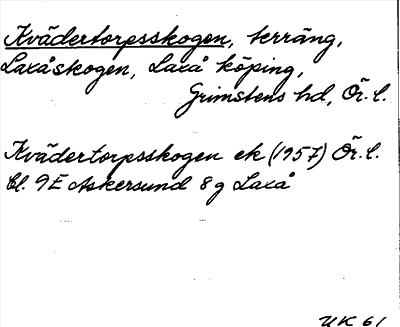 Kvädertorpsskogen, terräng,
Laxåskogen, Laxå köping,
Grimstens hd, Ör. l.
Kvädertorpsskogen ek (1957) Ör. l.
bl. 9E Askersund 8g Laxå
UK 61